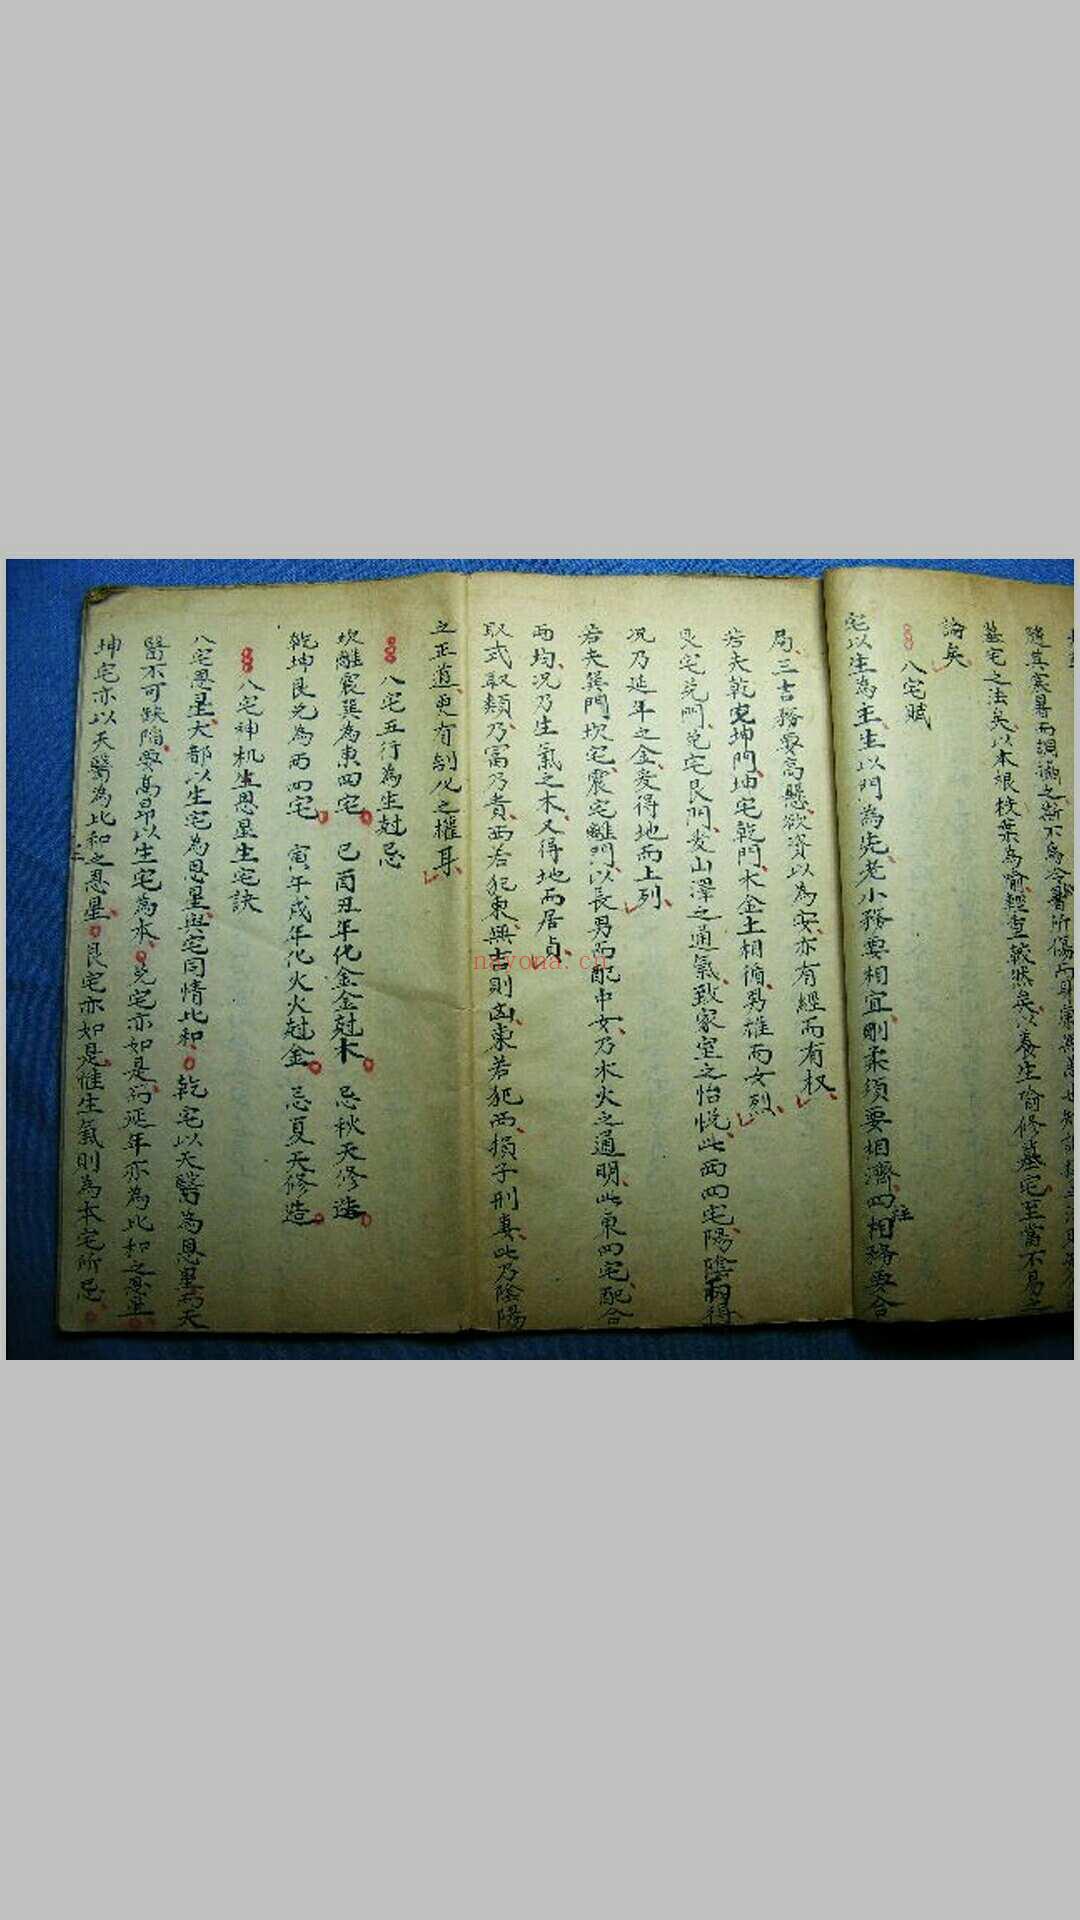 隨其寒暑而調攝之斯不為冷暑所傷
墓宅之法矣以本根枝葉為喻經查截然矣以養生喻修墓宅至當不易之
論矣
八宅賦
宅以生為主生以門為先老小務要相宜剛柔須要相濟四柱相務要合
局三吉務要高懸欲資以為安亦有經而有权
若夫乾宅坤門坤宅乾門木金土相循男雄而女烈
艮宅兌門兌宅艮門爰山澤之通氣致家室之怡悅此西四宅陽陰兩得
况乃延年之金爰得地而上列
若夫巽門坎宅震宅離門以長男而配中女乃水火之通明此東四宅配合
兩均况乃生氣之木又得地而居貞
取式取類乃富乃貴西若犯東無吉則凶東若犯西損子刑妻此乃陰陽
之正道更有制化之權耳
八宅五行為生尅忌
坎離震巽為東四宅 巳酉丑年化金金尅木 忌秋天修造
乾坤艮兌為西四宅 寅午戌年化火火尅金 忌夏天修造
八宅神机生恩星生宅訣
八宅恩星大都以生宅為恩星與宅同情比和乾宅以天醫為恩星而天
醫不可缺陷要高昂以生宅為本兌宅亦如是而延年亦為比和之恩星
坤宅亦以天醫為比和之恩星艮宅亦如是惟生氣則為本宅所忌
nayona.cn